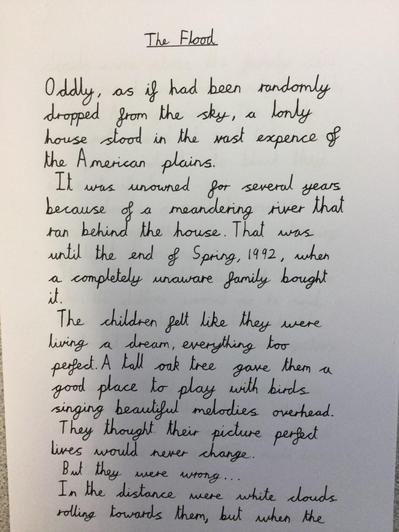 The Flood
Oddly, as if had been randomly
dropped from the sky, a lonly
house stood in the vast expence of
the American plains.
It was unowned for several years
because of a meandering river that
ran behind the house. That was
until the end of Spring, 1992, when
a completely unaware family bought
it.
The children felt like they were
living a dream, everything too
perfect. A tall oak tree gave them a
good place to play with birds
singing beautiful melodies overhead.
They thought their picture perfect
lives would never change.
But they were wrong...
In the distance were white clouds
rolling towards them, but when the